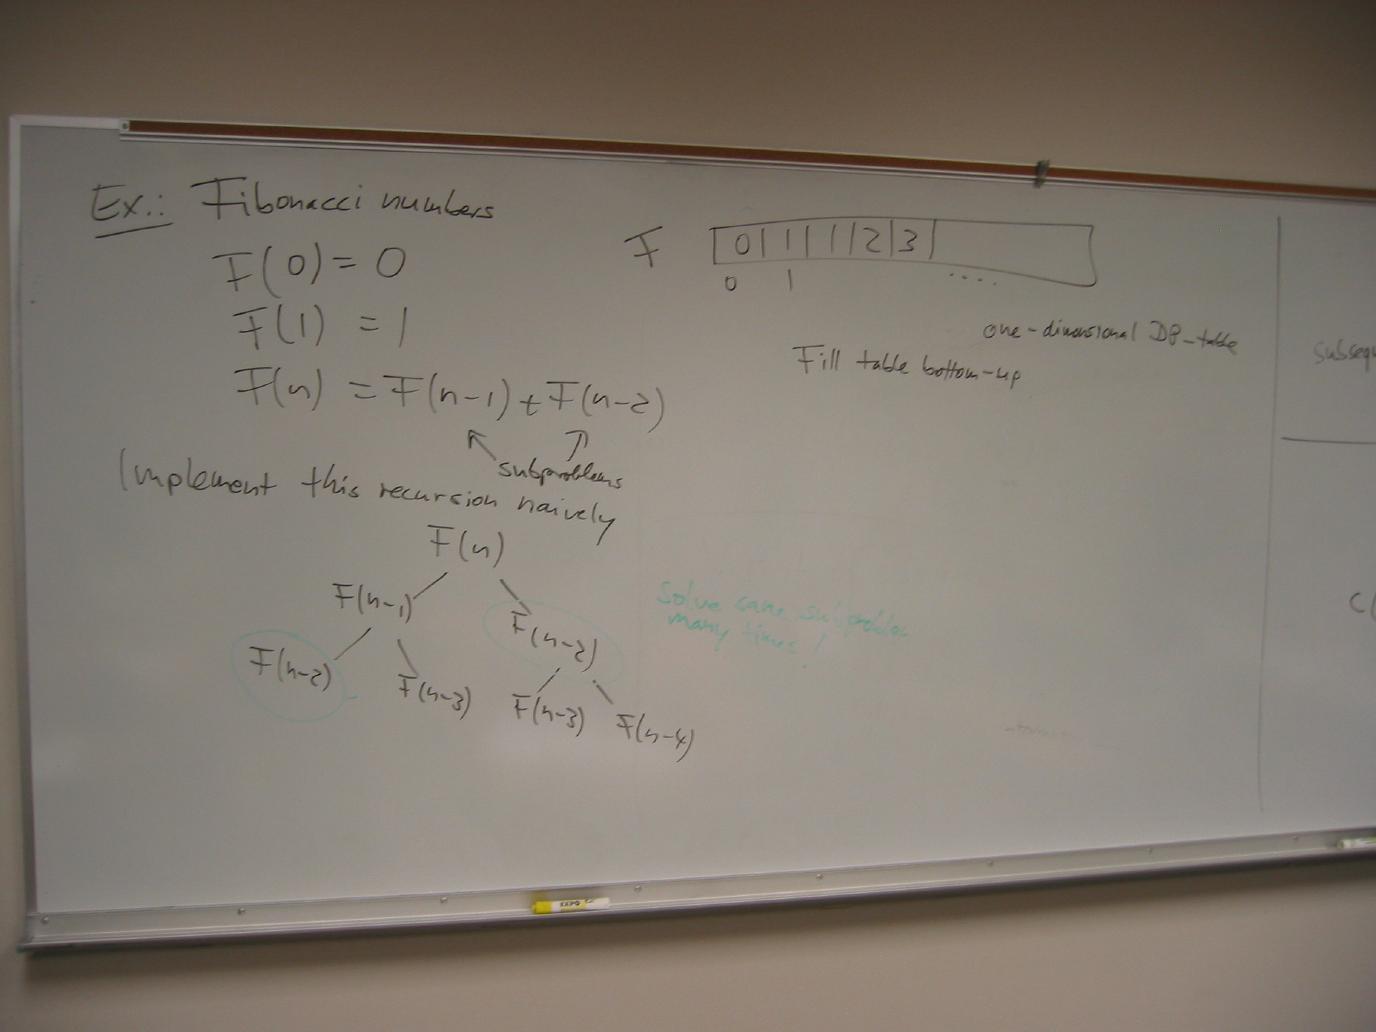 Ex.: Fibonacci numbers
F(0) = 0
F(1) = 1
F(n) = F(n-1) + F(n-2)
subproblems
Implement this recursion naively
F(n)
F(n-1) F(n-2)
F(n-2) F(n-3) F(n-3) F(n-4)
Solve same subproblem
many times!
F 0 1 1 2 3
0 1 ....
one-dimensional DP-table
Fill table bottom-up
subseq
C(
EXPO